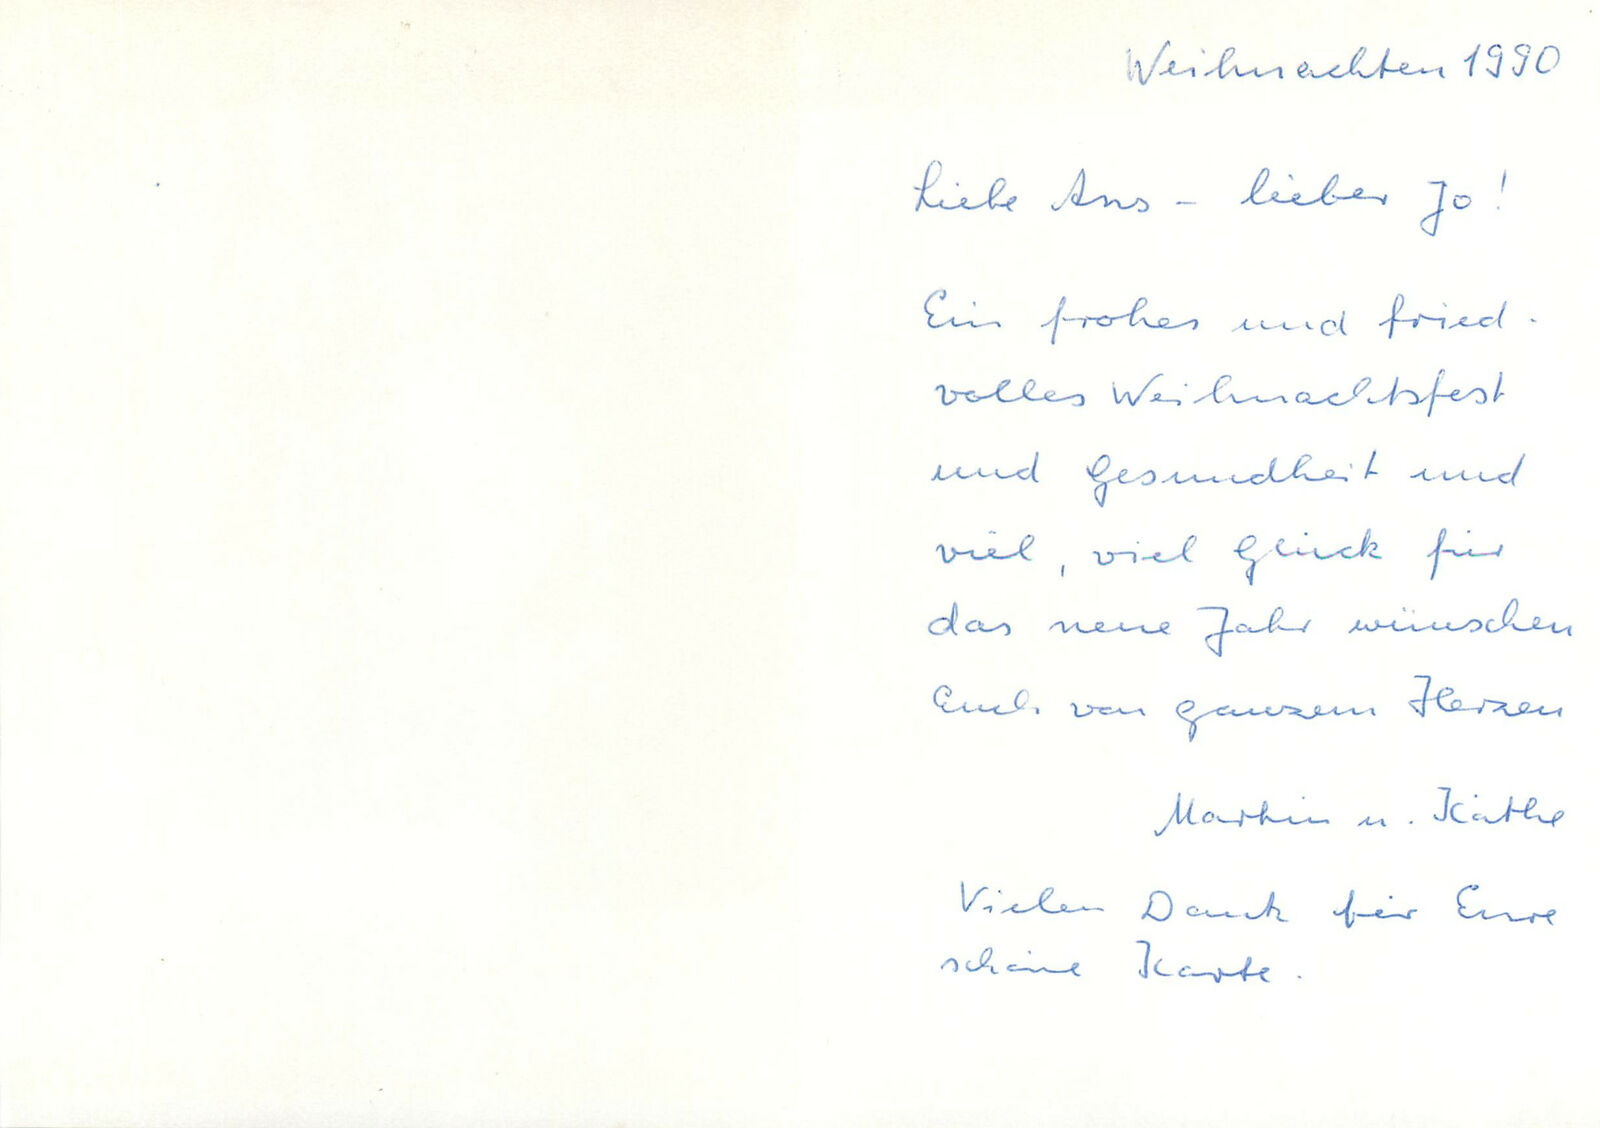 Weihnachten 1990
Liebe Ans - lieber Jo!
Ein frohes und fried-
volles Weihnachtsfest
und Gesundheit und
viel, viel Glück für
das neue Jahr wünschen
Euch von ganzem Herzen
Martin u. Käthe
Vielen Dank für Eure
schöne Karte.